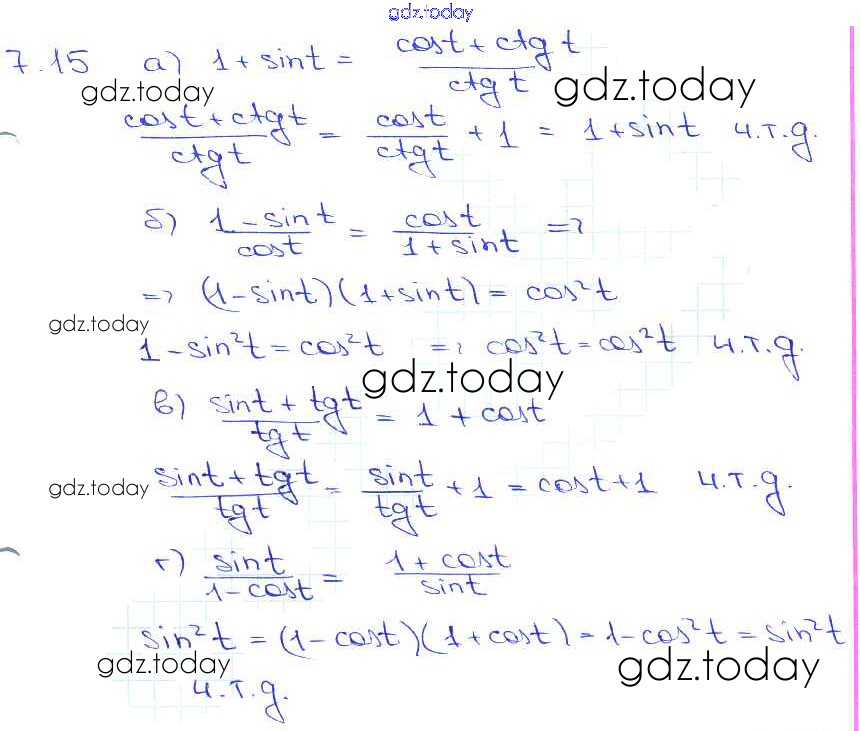 gdz.today
7.15 а) 1 + sint = (cost + ctg t)/(ctg t)
gdz.today gdz.today
(cost + ctgt)/(ctgt) = cost/ctgt + 1 = 1 + sint ч.т.д.
б) (1 - sint)/cost = cost/(1 + sint) =>
=> (1 - sint)(1 + sint) = cos²t
gdz.today
1 - sin²t = cos²t => cos²t = cos²t ч.т.д.
gdz.today
в) (sint + tgt)/(tgt) = 1 + cost
gdz.today (sint + tgt)/(tgt) = sint/tgt + 1 = cost + 1 ч.т.д.
г) sint/(1 - cost) = (1 + cost)/sint
sin²t = (1 - cost)(1 + cost) = 1 - cos²t = sin²t
gdz.today gdz.today
ч.т.д.